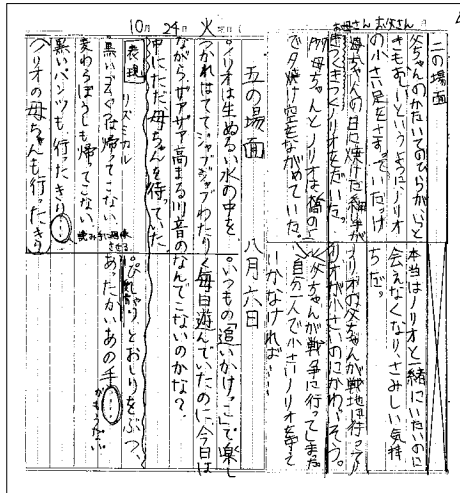 二の場面
父ちゃんのかたいてのひらが、いと
さもおしいというように、ノリオ
の小さい足をさすっていたっけ
お母さん お父さん
母ちゃんの日に焼けた細い手が
きつくきつくノリオをだいた。
母ちゃんとノリオは橋の上
で夕焼け空をながめていた。
本当はノリオと一緒にいたいのに
会えなくなり、さみしい気持
ちだ。
ノリオの父ちゃんが戦地に行って
ノリオが小さいのにかわいそう。
父ちゃんが戦争に行ってしまった
自分一人で小さいノリオを育て
いかなければ…
五の場面
八月六日
10月24日 火
ノリオは生ぬるい水の中を
つかれはててジャブジャブわたり
ながら、ザアザア高まる川音の
中にただ母ちゃんを待っていた
いつもの「追いかけっこ」で楽し
く毎日遊んでいたのに今日は
なんでこないのかな?
表現 リズミカル
黒いゴムぐつは帰ってこない
変わるぼうしも帰ってこない
黒いパンツも行ったきり…
ノリオの母ちゃんも行ったきり
ぴしゃりとおしりをぶつ、
あったかいあの手…